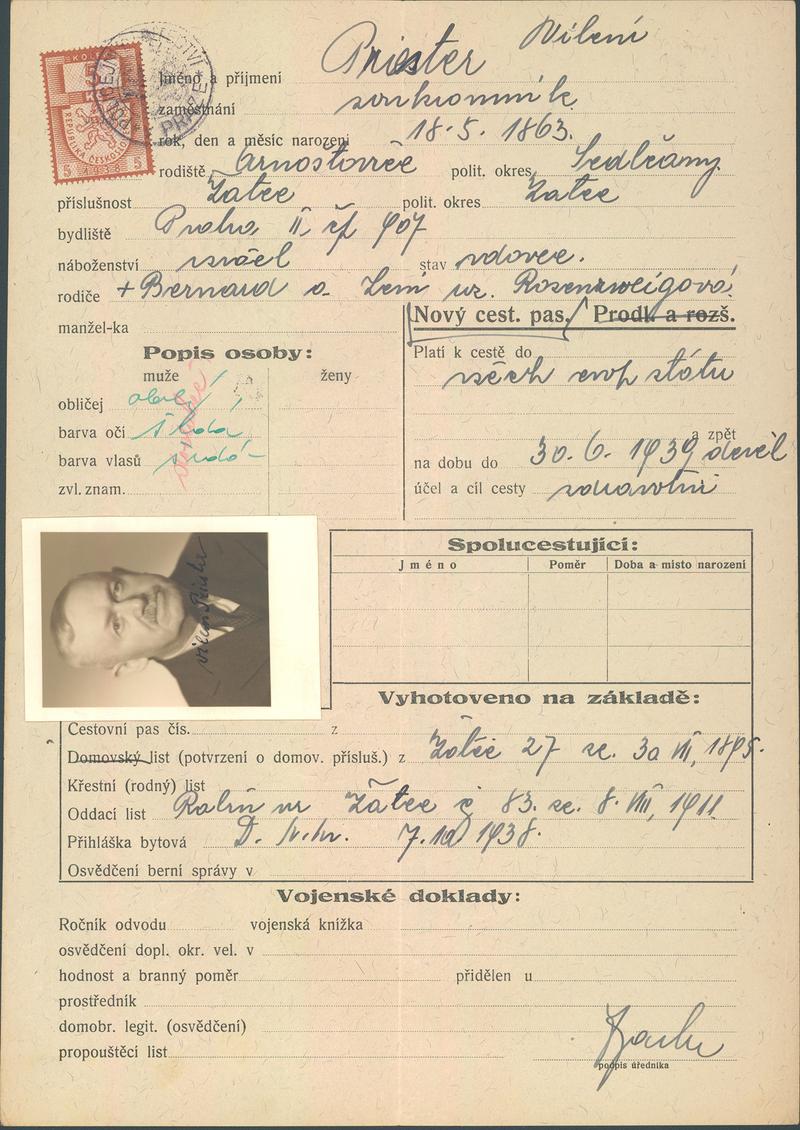 Jméno a příjmení Priester Vilém
zaměstnání soukromník
rok, den a měsíc narození 18.5. 1863.
rodiště Arnoštovice polit. okres Sedlčany
příslušnost Žatec polit. okres Žatec
bydliště Praha II, čp 907
náboženství israel stav vdovec.
rodiče + Bernard a Leni roz. Rosenzweigová
manžel-ka
Nový cest. pas. Prodl. a rozš.
Popis osoby:
muže ženy
obličej oval
barva očí šedá
barva vlasů šedá
zvl. znam.
Platí k cestě do
všech evrop států
a zpět
na dobu do 30.6. 1939
účel a cíl cesty zdravotní
KČS
5
REPUBLIKA ČESKOSLOV
5 1938 5
Vilém Priester
Spolucestující:
Jméno Poměr Doba a místo narození
Vyhotoveno na základě:
Cestovní pas čís. z
Domovský list (potvrzení o domov. přísluš.) z Žatec 27 ze. 30 VII, 1895.
Křestní (rodný) list
Oddací list Rabín Žatec č 83. ze. 8. VIII, 1911
Přihláška bytová 7.10 1938.
Osvědčení berní správy v
Vojenské doklady:
Ročník odvodu vojenská knížka
osvědčení dopl. okr. vel. v
hodnost a branný poměr přidělen u
prostředník
domobr. legit. (osvědčení)
propouštěcí list
podpis úředníka